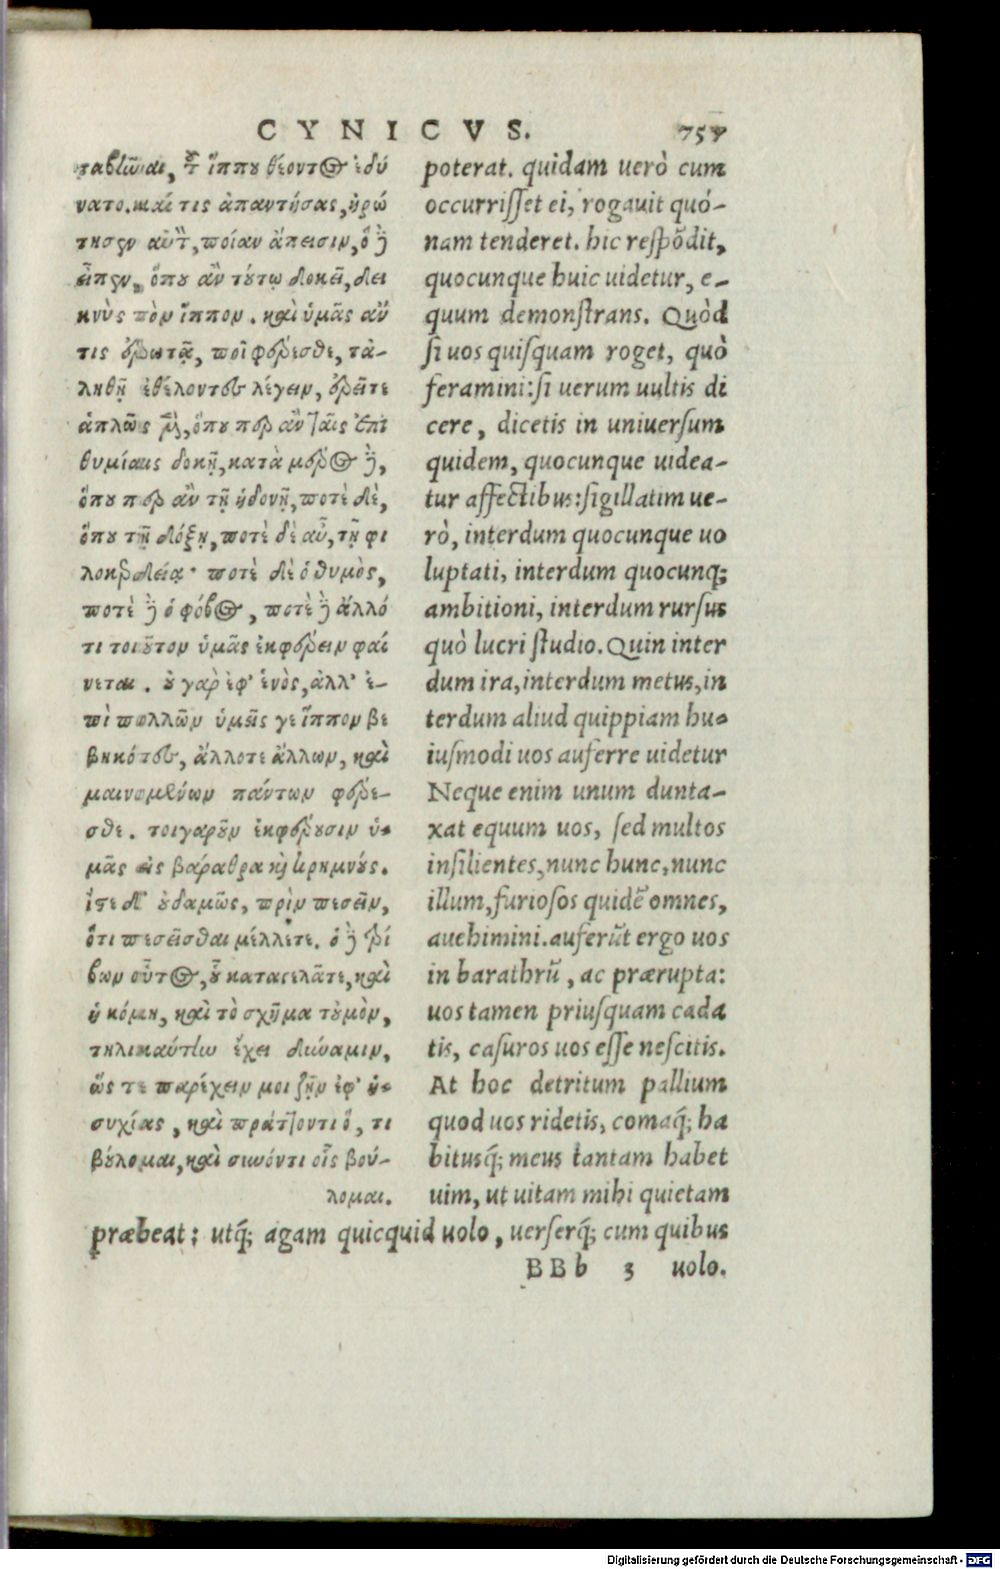 CYNICVS. 757
ταβῆναι, τοῦ ἵππου θέοντος ἐδύ
νατο. καί τις ἀπαντήσας, ἠρώ
τησεν αὐτὸν, ποίαν ἄπεισιν, ὁ δὲ
εἶπεν, ὅπου ἂν τούτῳ δοκεῖ, δει
κνὺς τὸν ἵππον. καὶ ὑμᾶς ἄν
τις ἐρωτᾷ, ποῖ φέρεσθε, τἀ-
ληθῆ ἐθέλοντες λέγειν, ἐρεῖτε
ἁπλῶς μὲν, ὅπου περ ἂν ταῖς ἐπι
θυμίαις δοκῇ, κατὰ μέρος δὲ,
ὅπου περ ἂν τῇ ἡδονῇ, ποτὲ δὲ,
ὅπου τῇ δόξῃ, ποτὲ δὲ αὖ, τῇ φι
λοκερδείᾳ· ποτὲ δὲ ὁ θυμὸς,
ποτὲ δὲ ὁ φόβος, ποτὲ δὲ ἄλλό
τι τοιοῦτον ὑμᾶς ἐκφέρειν φαί
νεται. οὐ γὰρ ἐφ' ἑνὸς, ἀλλ' ἐ-
πὶ πολλῶν ὑμεῖς γε ἵππον βε
βηκότες, ἄλλοτε ἄλλων, καὶ
μαινομένων πάντων φέρε-
σθε. τοιγαροῦν ἐκφέρουσιν ὑ-
μᾶς εἰς βάραθρα καὶ κρημνούς.
ἴστε δ' οὐδαμῶς, πρὶν πεσεῖν,
ὅτι πεσεῖσθαι μέλλετε. ὁ δὲ τρί
βων οὗτος, οὗ καταγελᾶτε, καὶ
ἡ κόμη, καὶ τὸ σχῆμα τοὐμὸν,
τηλικαύτην ἔχει δύναμιν,
ὥς τε παρέχειν μοι ζῆν ἐφ' ἡ-
συχίας, καὶ πράττοντι ὅ, τι
βούλομαι, καὶ συνόντι οἷς βού-
λομαι.
poterat. quidam uerò cum
occurriſſet ei, rogauit quó-
nam tenderet. hic reſpõdit,
quocunque huic uidetur, e-
quum demonſtrans. Quòd
ſi uos quiſquam roget, quò
feramini: ſi uerum uultis di
cere, dicetis in uniuerſum
quidem, quocunque uidea-
tur affectibus: ſigillatim ue-
rò, interdum quocunque uo
luptati, interdum quocunq;
ambitioni, interdum rurſus
quò lucri ſtudio. Quin inter
dum ira, interdum metus, in
terdum aliud quippiam hu-
iuſmodi uos auferre uidetur
Neque enim unum dunta-
xat equum uos, ſed multos
inſilientes, nunc hunc, nunc
illum, furioſos quidẽ omnes,
auehimini. auferũt ergo uos
in barathrũ, ac prærupta:
uos tamen priuſquam cada
tis, caſuros uos eſſe neſcitis.
At hoc detritum pallium
quod uos ridetis, comaq́; ha
bitusq́; meus tantam habet
uim, ut uitam mihi quietam
præbeat: utq́; agam quicquid uolo, uerſerq́; cum quibus
BBb 3 uolo.
Digitalisierung gefördert durch die Deutsche Forschungsgemeinschaft - DFG